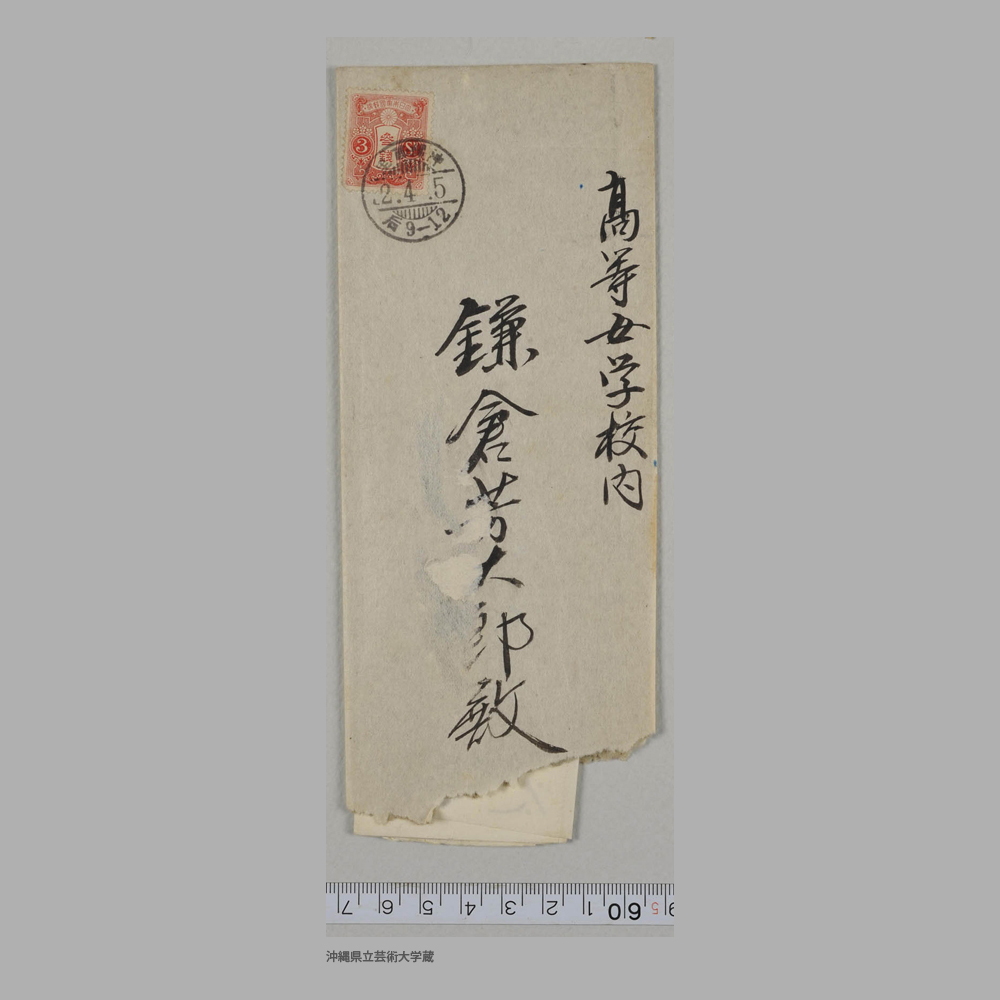 高等女学校内
鎌倉芳太郎殿
3
2.4.5
后9-12
7 6 5 4 3 2 1 60 5 9
沖縄県立芸術大学蔵